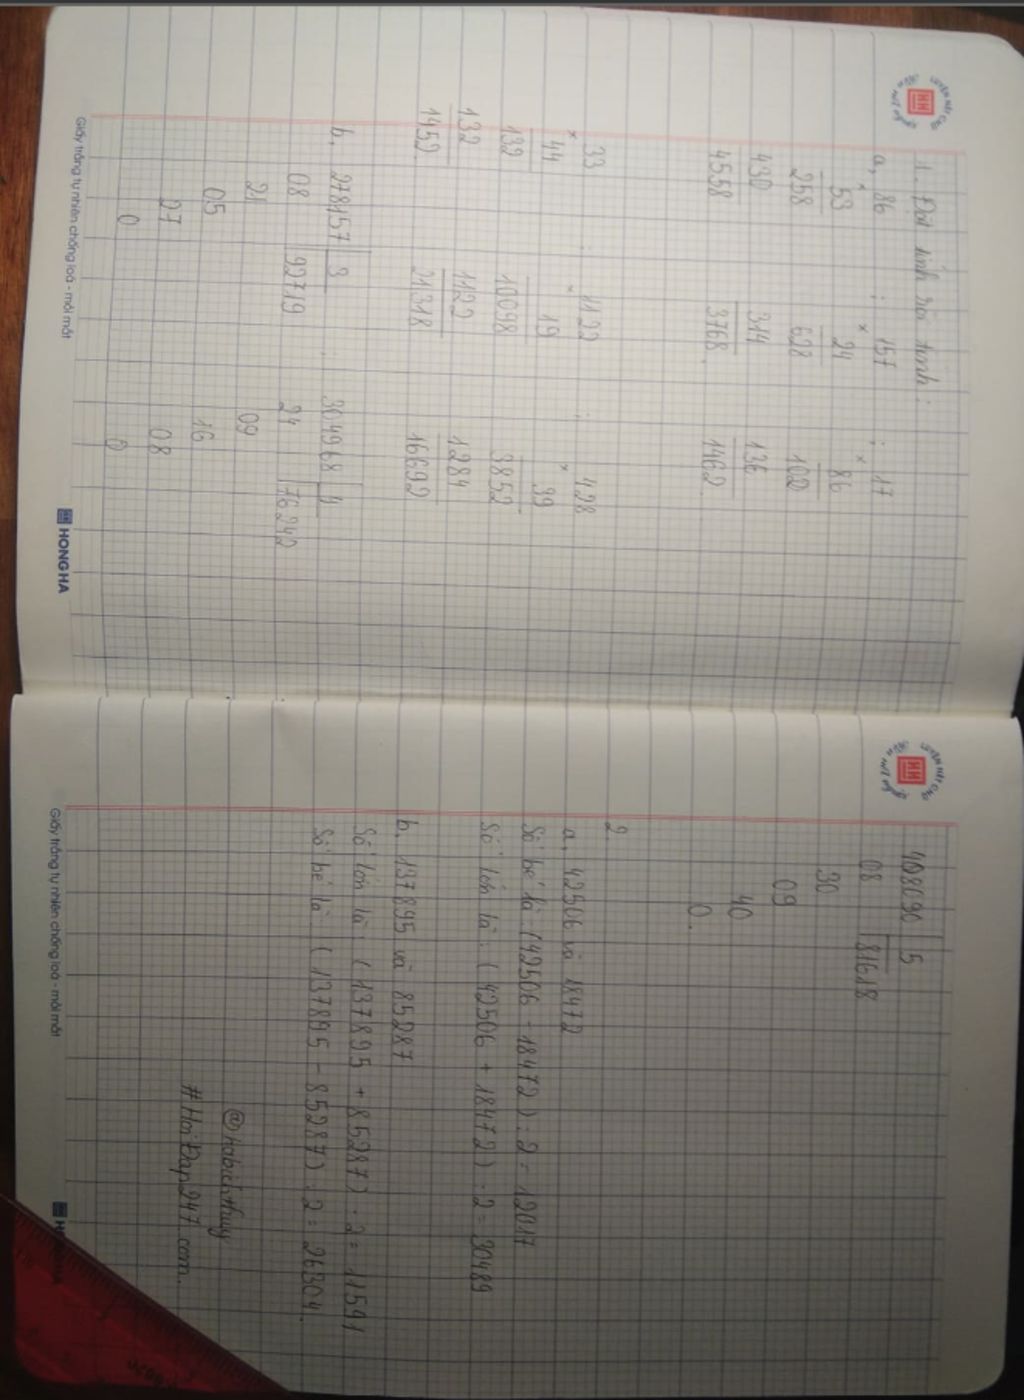 1. Đặt tính rồi tính:
a, 86 ; 157 ; 17
× 53 × 24 × 86
258 628 102
430 314 136
4558 3768 1462
33 ; 1122 ; 428
× 44 × 19 × 39
132 10098 3852
132 1122 1284
1452 21318 16692
b, 278157 3 304968 4
08 92719 24 76242
21 09
05 16
27 08
0 0
Giấy trắng tự nhiên chống loá - mỏi mắt HONG HA
408090 5
08 81618
30
09
40
0.
2.
a, 42506 và 18472
Số bé là (42506 - 18472) : 2 = 12017
Số lớn là: (42506 + 18472) : 2 = 30489
b, 137895 và 85287
Số lớn là: (137895 + 85287) : 2 = 111591
Số bé là: (137895 - 85287) : 2 = 26304.
@habichthuy
#HoiDap247.com.
Giấy trắng tự nhiên chống loá - mỏi mắt